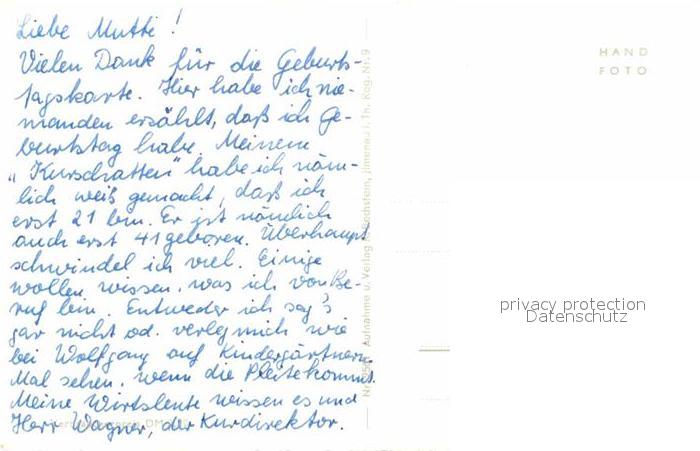 Liebe Mutti!
Vielen Dank für die Geburts-
tagskarte. Hier habe ich nie-
manden erzählt, daß ich Ge-
burtstag habe. Meinem
„Kurschatten" habe ich näm-
lich weiß gemacht, daß ich
erst 21 bin. Er ist nämlich
auch erst 41 geboren. Überhaupt
schwindel ich viel. Einige
wollen wissen, was ich von Be-
ruf bin. Entweder ich sag's
gar nicht od. verleg mich wie
bei Wolfgang auf Kindergärtnerin.
Mal sehen, wenn die Pleite kommt.
Meine Wirtsleute wissen es und
Herr Wagner, der Kurdirektor.
Aufnahme u. Verlag Bechstein, Ilmenau i. Th. Reg. Nr. 9
HAND
FOTO
privacy protection
Datenschutz